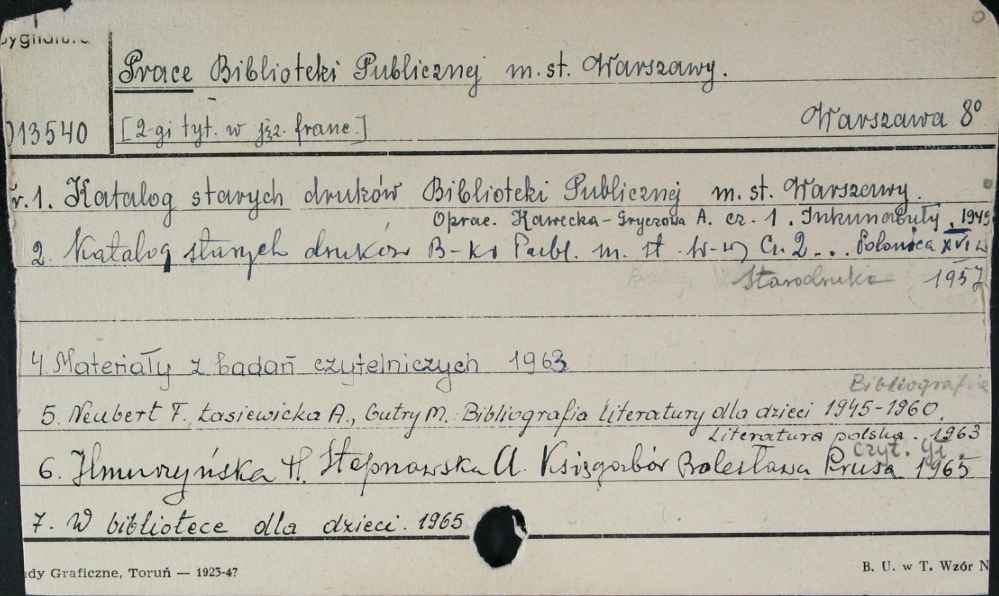 Sygnatura
Prace Biblioteki Publicznej m. st. Warszawy.
013540
[2-gi tyt. w jęz. franc.]
Warszawa 8°
r. 1. Katalog starych druków Biblioteki Publicznej m. st. Warszawy.
Oprac. Kawecka-Gryczowa A. cz. 1. Inkunabuły. 1949
2. Katalog starych druków B-ki Publ. m. st. W-wy Cz. 2... Polonica XVI w
Starodruki 1957
4. Materiały z badań czytelniczych 1963
Bibliografie
5. Neubert F. Łasiewicka A., Gutry M. Bibliografia literatury dla dzieci 1945-1960.
Literatura polska. 1963
czyt. gł.
6. Ilmurzyńska H. Stepnowska A. Księgozbiór Bolesława Prusa 1965
7. W bibliotece dla dzieci. 1965
dy Graficzne, Toruń — 1925-47
B. U. w T. Wzór N